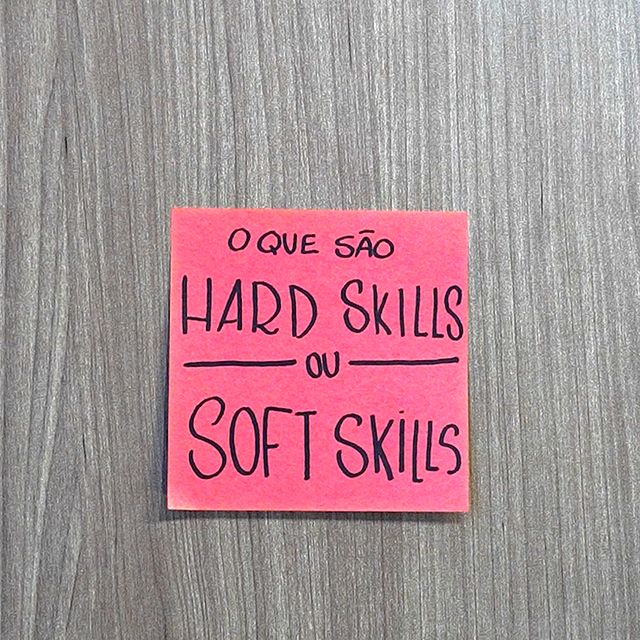 O QUE SÃO
HARD SKILLS
OU
SOFT SKILLS